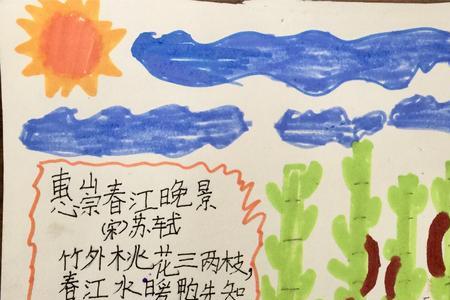 惠崇春江晚景
(宋)苏轼
竹外桃花三两枝,
春江水暖鸭先知